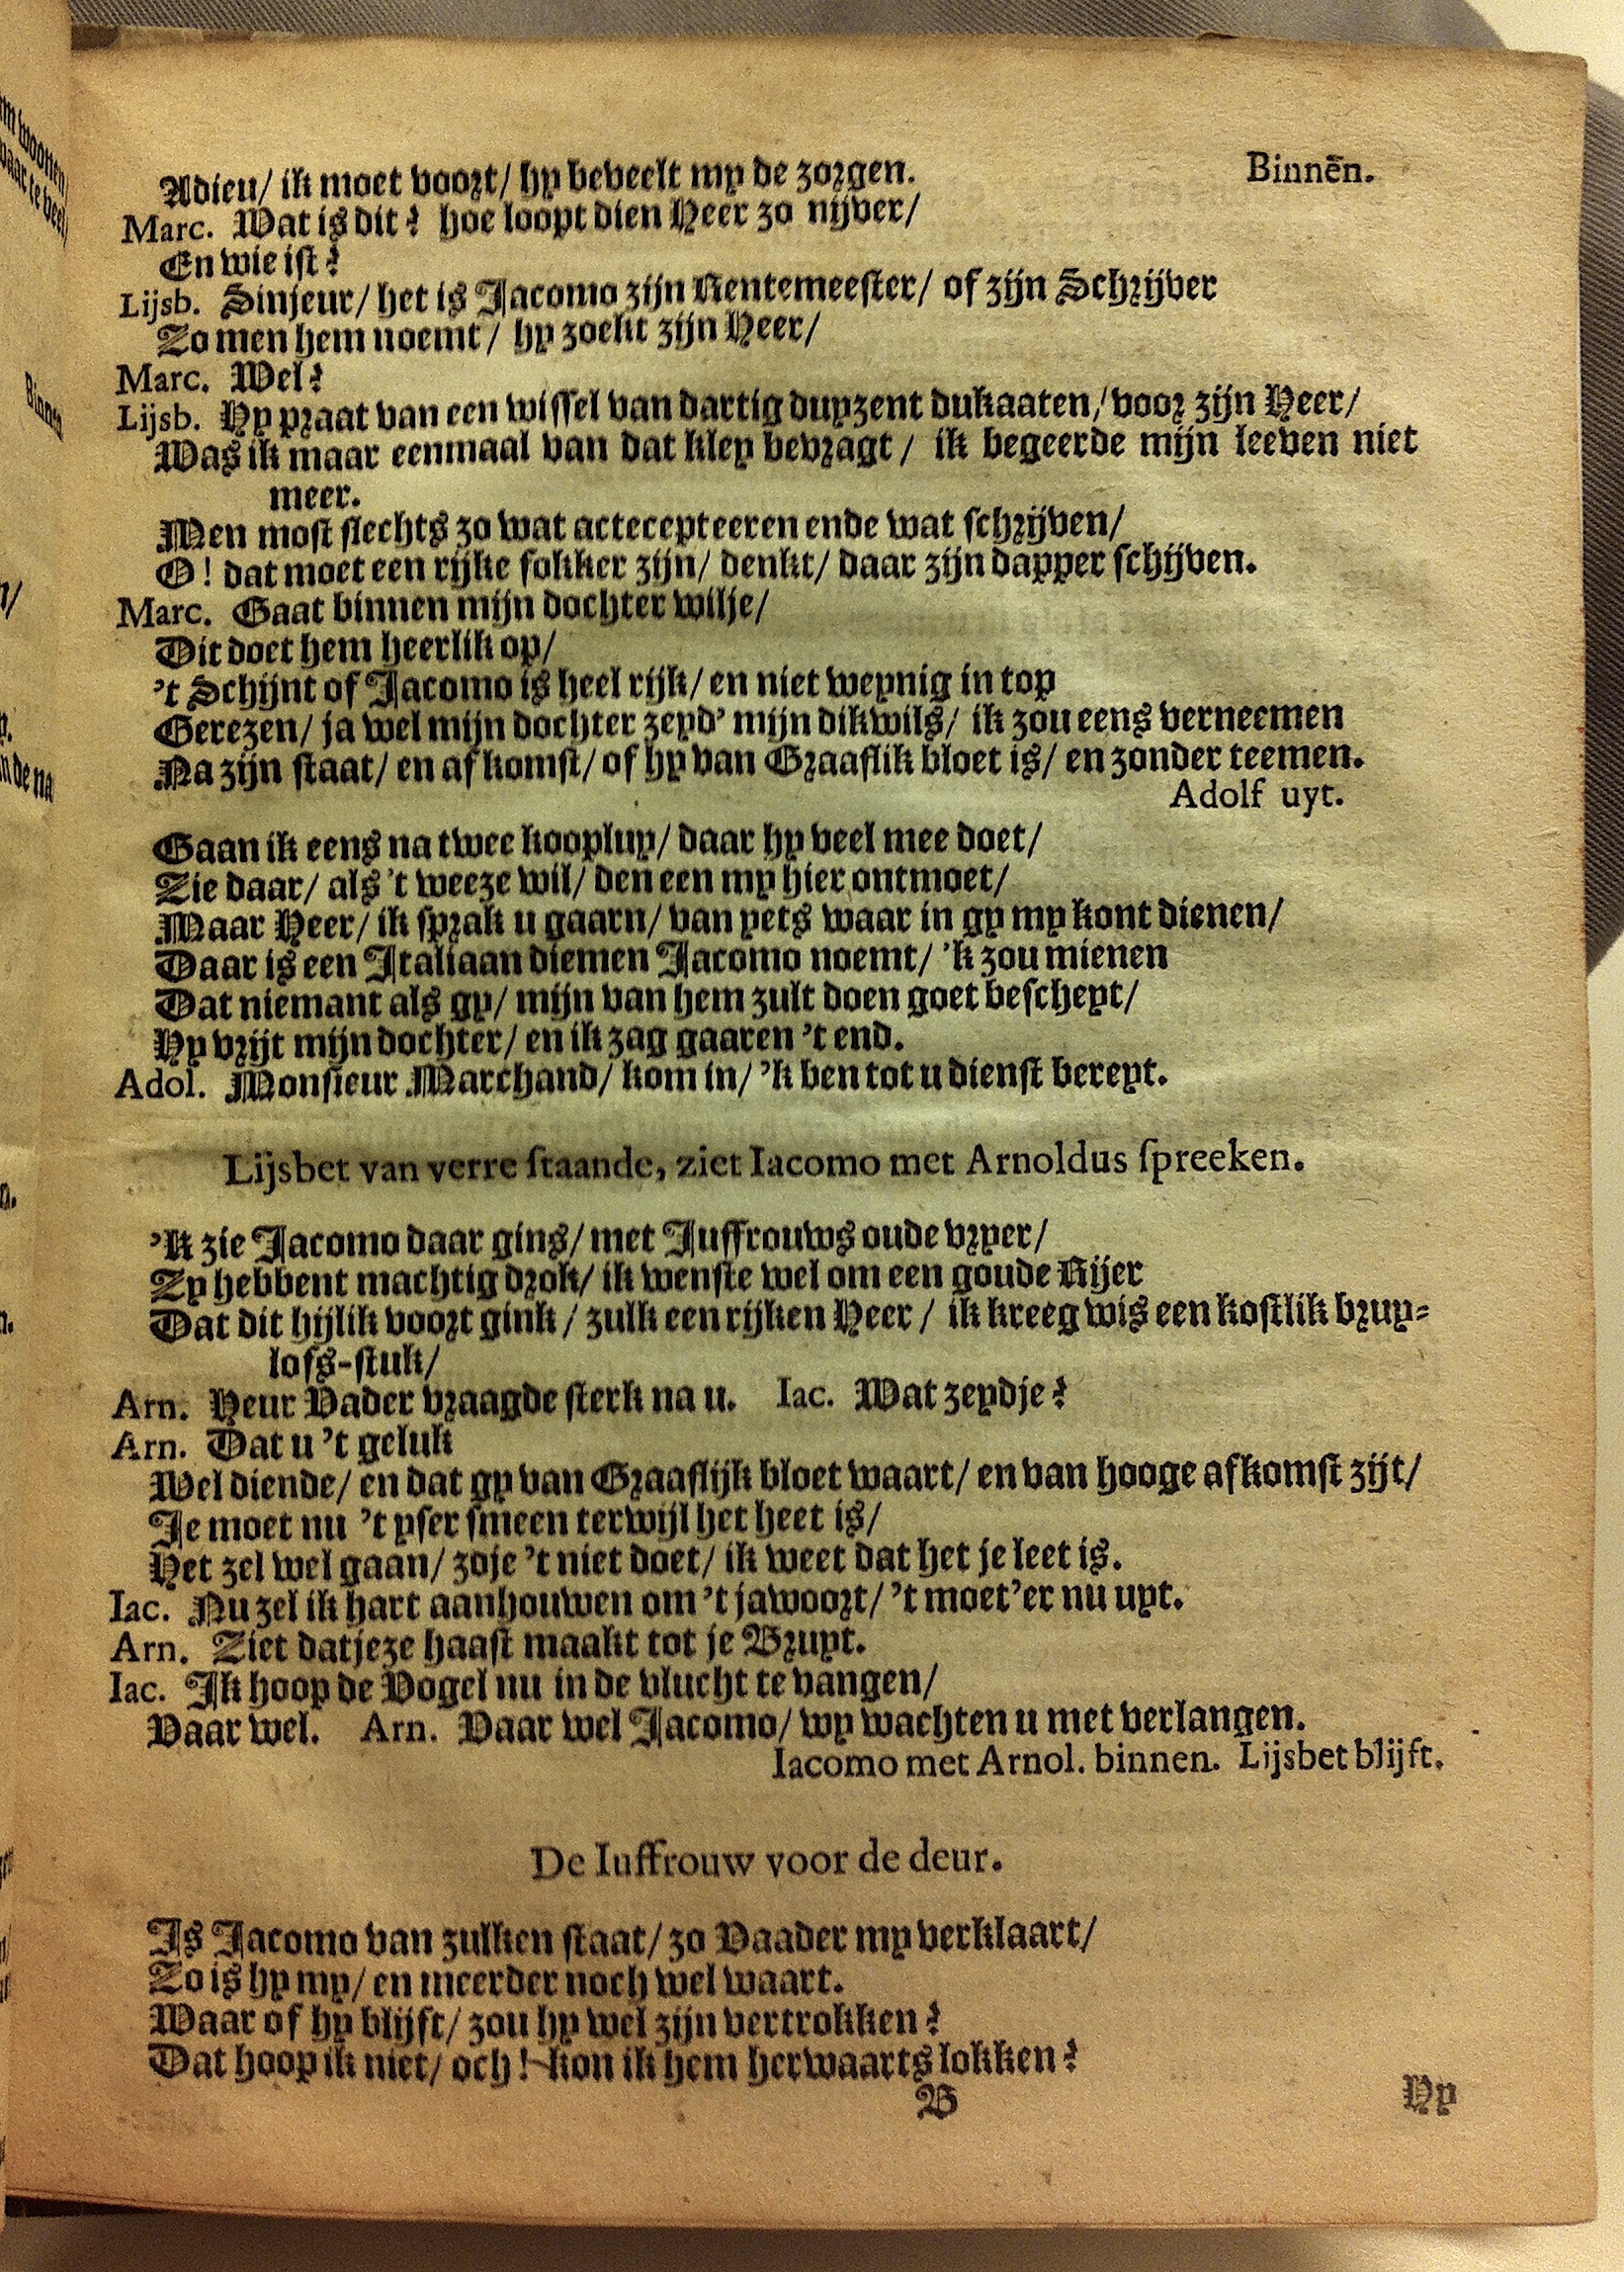 Adieu/ ik moet voort/ hy beveelt my de zorgen. Binnēn.
Marc. Wat is dit? hoe loopt dien Heer zo nijver/
En wie ist?
Lijsb. Sinjeur/ het is Jacomo zijn Rentemeester/ of zijn Schrijver
Zo men hem noemt/ hy zoekt zijn Heer/
Marc. Wel?
Lijsb. Hy praat van een wissel van dartig duyzent dukaaten/ voor zijn Heer/
Was ik maar eenmaal van dat kley bevragt/ ik begeerde mijn leeven niet
meer.
Men most slechts zo wat actecepteeren ende wat schrijven/
O! dat moet een rijke fokker zijn/ denkt/ daar zijn dapper schijven.
Marc. Gaat binnen mijn dochter wilje/
Dit doet hem heerlik op/
't Schijnt of Jacomo is heel rijk/ en niet weynig in top
Gerezen/ ja wel mijn dochter zeyd' mijn dikwils/ ik zou eens verneemen
Na zijn staat/ en afkomst/ of hy van Graaflik bloet is/ en zonder teemen.
Adolf uyt.
Gaan ik eens na twee koopluy/ daar hy veel mee doet/
Zie daar/ als 't weeze wil/ den een my hier ontmoet/
Maar Heer/ ik sprak u gaarn/ van yets waar in gy my kont dienen/
Daar is een Italiaan diemen Jacomo noemt/ 'k zou mienen
Dat niemant als gy/ mijn van hem zult doen goet bescheyt/
Hy vrijt mijn dochter/ en ik zag gaaren 't end.
Adol. Monsieur Marchand/ kom in/ 'k ben tot u dienst bereyt.
Lijsbet van verre staande, ziet Iacomo met Arnoldus spreeken.
'k zie Jacomo daar gins/ met Juffrouws oude vryer/
Zy hebbent machtig drok/ ik wenste wel om een goude Rijer
Dat dit hijlik voort gink/ zulk een rijken Heer/ ik kreeg wis een kostlik bruy-
lofs-stuk/
Arn. Heur Vader vraagde sterk na u. Iac. Wat zeydje?
Arn. Dat u 't geluk
Wel diende/ en dat gy van Graaflijk bloet waart/ en van hooge afkomst zijt/
Je moet nu 't yser smeen terwijl het heet is/
Het zel wel gaan/ zoje 't niet doet/ ik weet dat het je leet is.
Iac. Nu zel ik hart aanhouwen om 't jawoort/ 't moet'er nu uyt.
Arn. Ziet datjeze haast maakt tot je Bruyt.
Iac. Ik hoop de Vogel nu in de vlucht te vangen/
Vaar wel. Arn. Vaar wel Jacomo/ wy wachten u met verlangen.
Iacomo met Arnol. binnen. Lijsbet blijft.
De Iuffrouw voor de deur.
Is Jacomo van zulken staat/ zo Vaader my verklaart/
Zo is hy my/ en meerder noch wel waart.
Waar of hy blijft/ zou hy wel zijn vertrokken?
Dat hoop ik niet/ och! kon ik hem herwaarts lokken?
B Hy